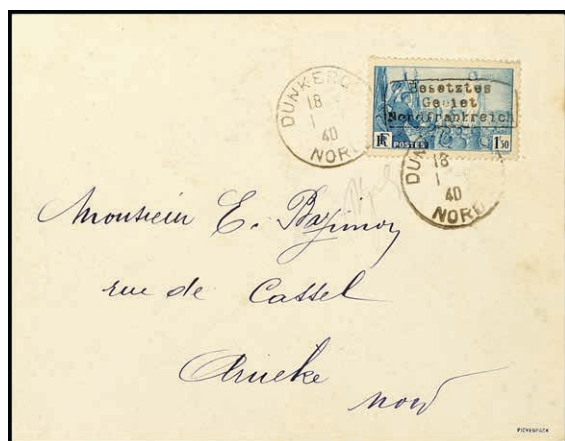 DUNKERQ
18
1
40
NORD
Besetztes
Gebiet
Nordfrankreich
RF POSTES 1f50
DUN
18
1
40
NORD
Monsieur E.
rue de Cassel
Arneke
Nord